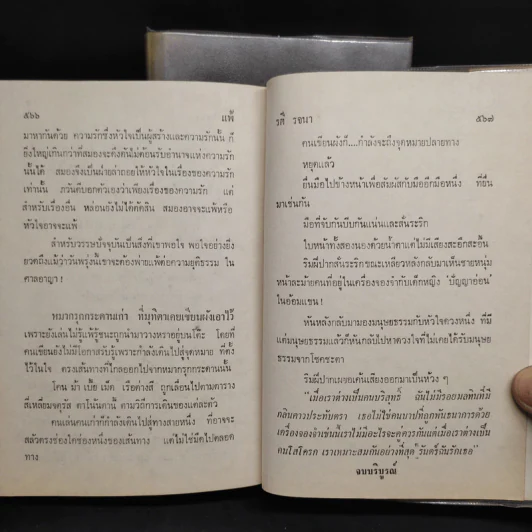 ๕๖๖ แพ้
มาหากันด้วย ความรักซึ่งหัวใจเป็นผู้สร้างและความรักนั้น ก็
ยิ่งใหญ่เกินกว่าที่สมองจะดึงดันไม่ต้อนรับอำนาจแห่งความรัก
นั้นได้ สมองจึงเป็นฝ่ายลาถอยให้หัวใจในเรื่องของความรัก
เท่านั้น ภวันตีบอกตัวเองว่าเพียงเรื่องของความรัก แต่
สำหรับเรื่องอื่น หล่อนยังไม่ได้ตัดสิน สมองอาจจะแพ้หรือ
หัวใจอาจจะแพ้
สำหรับวรรษปัจจุบันเป็นสิ่งที่เขาพอใจ พอใจอย่างยิ่ง
ยวดถึงแม้ว่าวันพรุ่งนี้เขาจะต้องพ่ายแพ้ต่อความยุติธรรม ใน
ศาลอาญา !
หมากรุกกระดานเก่า ที่มุทิตาเคยเขียนผังเอาไว้
เพราะยังเล่นไม่รู้แพ้รู้ชนะถูกนำมาวางหราอยู่บนโต๊ะ โดยที่
คนเขียนยังไม่มีโอกาสรับรู้เพราะกำลังเดินไปสู่จุดหมาย ที่ตั้ง
ไว้ในใจ ตรงเส้นทางที่ไกลออกไปจากหมากรุกกระดานนั้น
โคน ม้า เบี้ย เม็ด เรือต่างสี ถูกเลื่อนไปตามตาราง
สี่เหลี่ยมจตุรัส ตาโน้นตานี้ ตามวิธีการเดินของแต่ละตัว
คนเล่นคนเก่าก็กำลังเดินไปสู่ทางสายหนึ่ง ที่อาจจะ
สลัวตรงช่องใดช่องหนึ่งของเส้นทาง แต่ไม่ใช่มืดไปตลอด
ทาง
รตี รจนา ๕๖๗
คนเขียนผังก็....กำลังจะถึงจุดหมายปลายทาง
หยุดแล้ว
ยื่นมือไปข้างหน้าเพื่อสัมผัสกับมืออีกมือหนึ่ง ที่ยื่น
มาเช่นกัน
มือที่จับกันบีบกันแน่นและสั่นระริก
ใบหน้าทั้งสองนองด้วยน้ำตาแต่ไม่มีเสียงสะอึกสะอื้น
ริมฝีปากสั่นระริกขณะเหลียวหลังกลับมาเห็นชายหนุ่ม
หน้าละม้ายคนที่อยู่ในเครื่องจองจำกับเด็กหญิง 'ปัญญาอ่อน'
ในอ้อมแขน !
หันหลังกลับมามองมนุษยธรรมกับหัวใจดวงหนึ่ง ที่มี
แต่มนุษยธรรมแล้วก็หันกลับไปหาดวงใจที่ไม่เคยได้รับมนุษย
ธรรมจากโชคชะตา
ริมฝีปากเผยอเค้นเสียงออกมาเป็นห้วง ๆ
"เมื่อเราต่างเป็นคนบริสุทธิ์ ฉันไม่มีรอยมลทินที่มี
กลิ่นคาวประทับตรา เธอไม่ใช่คนบาปที่ถูกพันธนาการด้วย
เครื่องจองจำเช่นนี้เราไม่มีอะไรจะคู่ควรกันแต่เมื่อเราต่างเป็น
คนโสโครก เราเหมาะสมกันอย่างที่สุด รันตร์ฉันรักเธอ"
จบบริบูรณ์